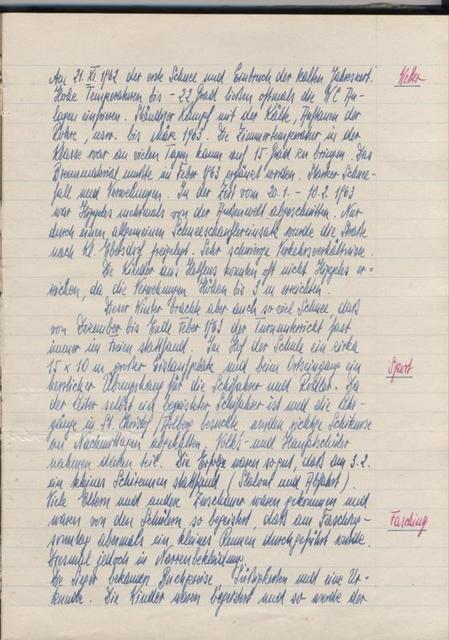 Am 21. XI. 1962 der erste Schnee und Einbruch der kalten Jahreszeit. Wetter
Hohe Temperaturen bis -22 Grad ließen oftmals die WC An-
lagen einfrieren. Ständiger Kampf mit der Kälte, Auftauen der
Rohre, usw. bis März 1963. Die Zimmertemperatur in der
Klasse war an vielen Tagen kaum auf 15 Grad zu bringen. Das
Brennmaterial mußte im Feber 1963 ergänzt werden. Starker Schnee-
fall und Verwehungen. In der Zeit vom 20.1. - 10.2. 1963
war mehrmals von der Außenwelt abgeschnitten. Nur
durch einen allgemeinen Schneeschauflereinsatz wurde die Straße
nach Kl. Ebersdorf freigelegt. Sehr schwierige Verkehrsverhältnisse.
Die Kinder aus konnten oft nicht er-
reichen, da die Verwehungen Höhen bis 3 m erreichten.
Dieser Winter brachte aber auch so viel Schnee, daß
von Dezember bis Ende Feber 1963 der Turnunterricht fast
immer im Freien stattfand. Im Hof der Schule ein zirka
15 x 10 m großer Eislaufplatz und beim Ortseingang ein Sport
herrlicher Übungshang für die Schifahrer und Rodler. Da
der Leiter selbst ein begeisterter Schifahrer ist und die Lehr-
gänge in St. Christof Arlberg besuchte, wurden richtige Schikurse
an Nachmittagen abgehalten. Volks- und Hauptschüler
nahmen daran teil. Die Erfolge waren so gut, daß am 3.2.
ein kleines Schirennen stattfand (Slalom und Abfahrt).
Viele Eltern und andere Zuschauer waren gekommen und
waren von den Schülern so begeistert, daß am Fasching- Fasching
sonntag abermals ein kleines Rennen durchgeführt wurde.
Diesmal jedoch in Narrenbekleidung.
Die Sieger bekamen Buchpreise, Süßigkeiten und eine Ur-
kunde. Die Kinder waren begeistert und so wurde der